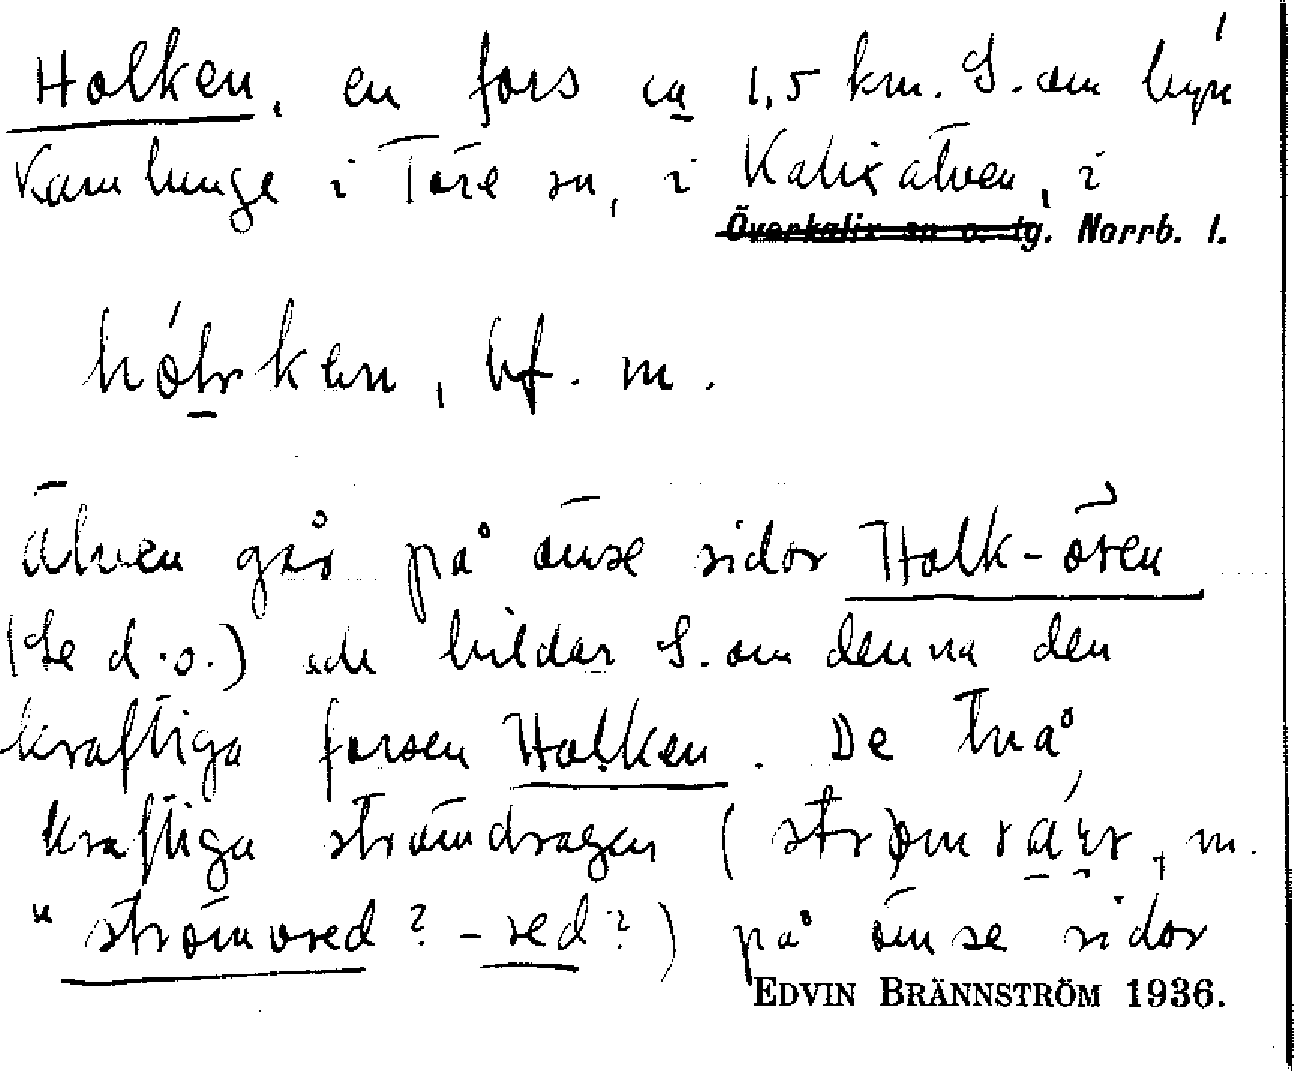 Holken, en fors ca 1,5 km. S. om byn
Kamlunge i Töre sn, i Kalixälven, i
Överkalix sn o. tg. Norrb. l.
bf. m.
Älven går på ömse sidor Holk-ören
(Se d.o.) och bildar S. om denna den
kraftiga forsen Holken. De två
kraftiga strömdragen ( m.
"strömvred? -red?) på ömse sidor
EDVIN BRÄNNSTRÖM 1936.